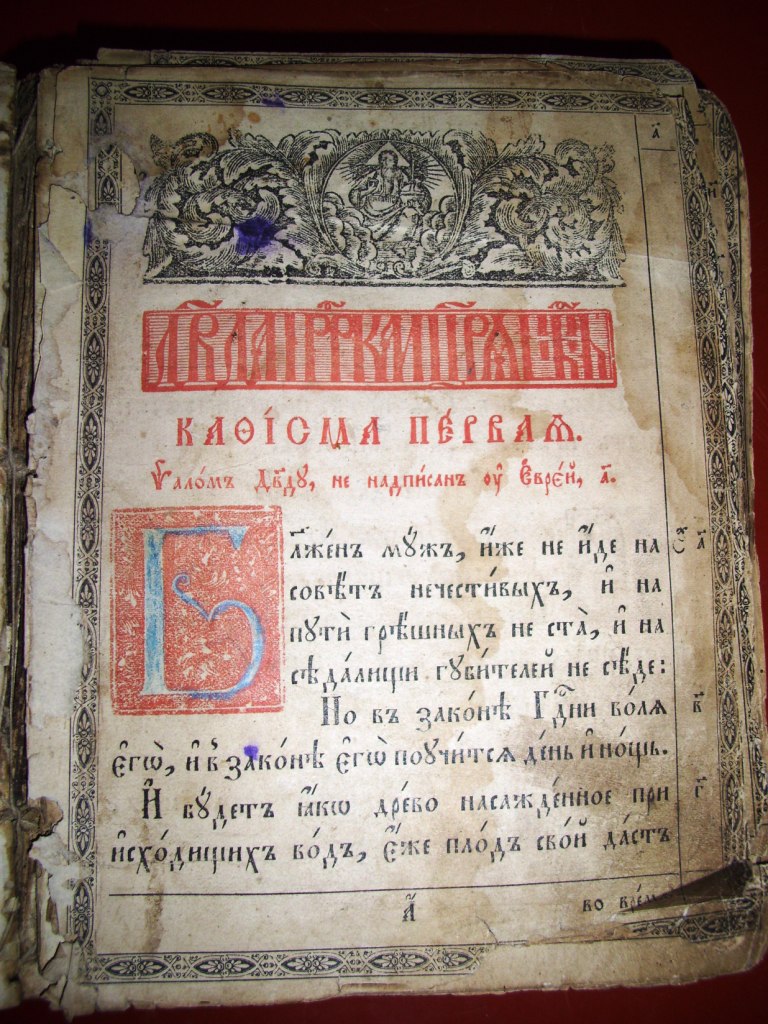 а҃
Дв҃да прⷪ҇рка и҆ цр҃ѧ̀ пѣ́снь
КАѲІ́СМА ПЕ́РВАѦ.
Ѱало́мъ Дв҃ду, не надпи́санъ ᲂу҆ Є҆врє́й, а҃.
Бл҃же́нъ мꙋ́жъ, и҆́же не и҆́де на а҃
совѣ́тъ нечести́выхъ, и҆ на
пꙋтѝ грѣ́шныхъ не ста̀, и҆ на
сѣда́лищи гꙋби́телей не сѣ́де:
Но въ зако́нѣ Гдⷭ҇ни во́лѧ в҃
є҆гѡ̀, и҆ в̾ зако́нѣ є҆гѡ̀ поꙋчи́тсѧ де́нь и҆ но́щь.
И҆ бꙋ́детъ ꙗ҆́кѡ дре́во насажде́нное при г҃
и҆схо́дищихъ во́дъ, є҆́же пло́дъ сво́й да́стъ
а҃ во вре́мѧ